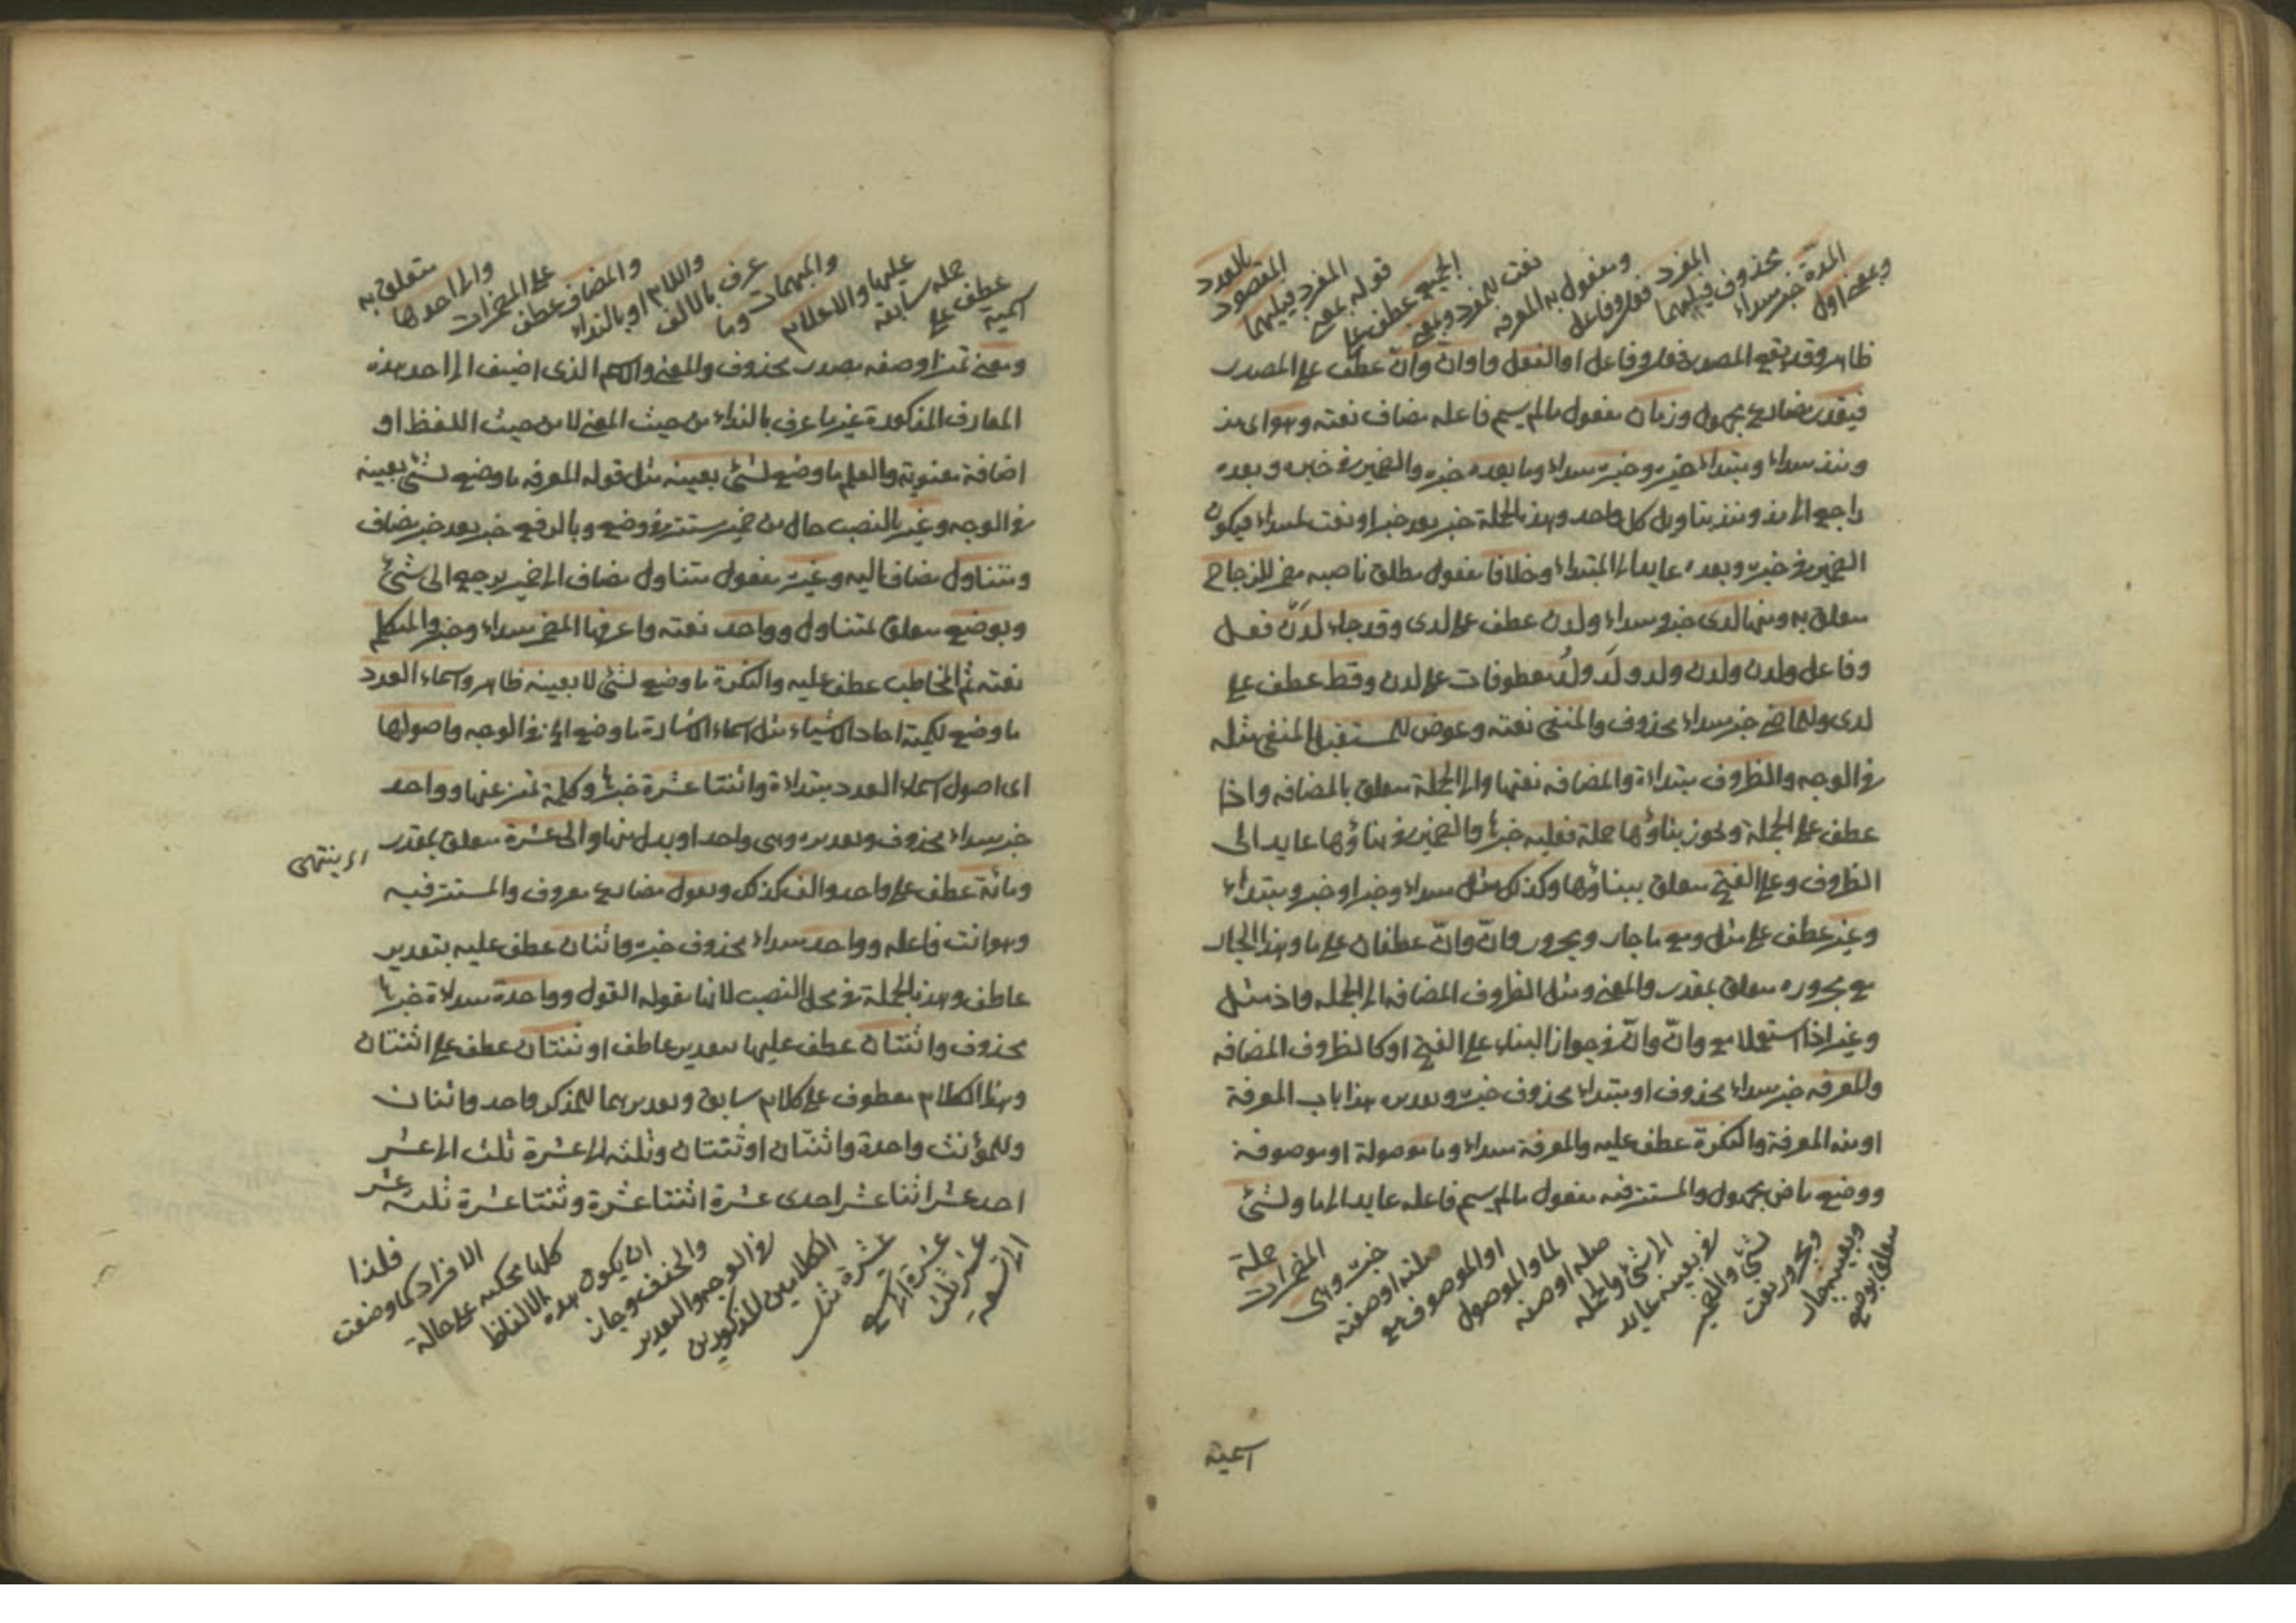 وبمعنى اول
المدة خبر مبتداء
محذوف فيليهما
المفرد فعل وفاعل
ومفعول به المعرفة
نعت للمفرد وبمعنى
الجميع عطف على
قوله بمعنى
المفرد فيليهما
المقصود
بالعدد
ظاهر وقد يقع المصدر فعل وفاعل او الفعل واو ان وان عطف على المصدر
فيقدر مضارع مجهول وزمان مفعول مالم يسم فاعله مضاف نعته وهو اى مذ
ومنذ مبتداء ومبتداء خبره وخبره مبتداء وما بعده خبره والضمير فى خبره وبعده
راجع الى مذ ومنذ بتاويل كل واحد وهذه الجملة خبر بعد خبر او نعت لمبتداء فيكون
الضمير فى خبره وبعده عايدا الى المبتداء وخلافا مفعول مطلق ناصبه للزجاج
متعلق به ومنها لدى خبر ومبتداء ولدن عطف على لدى وقد جاء لدن فعل
وفاعل ولدن ولدن ولد ولد ولد معطوفات على لدن وقط عطف على
لدى وللماضى خبر مبتداء محذوف والمنفى نعته وعوض للمستقبل المنفى مثله
فى الوجه والظروف مبتداءة والمضافه نعتها والى الجملة متعلق بالمضافه واذا
عطف على الجملة ويجوز بناؤها جملة فعليه خبرها والضمير فى بناؤها عايد الى
الظروف وعلى الفتح متعلق ببناؤها وكذلك مثل مبتداء وخبر او خبر ومبتداء
وغير عطف على مثل ومع ما جار ومجرور وان وان عطفان على ما وهذا الجار
مع مجروره متعلق بمقدر والمعنى ومثل الظروف المضافه الى الجمله واذ مثل
وغير اذا استعملا مع وان وان فى جواز البناء على الفتح او كالظروف المضافه
وللمعرفه خبر مبتداء محذوف او مبتداء محذوف خبره وتقديره هذا باب المعرفة
او منه المعرفة والنكرة عطف عليه والمعرفة مبتداء وما موصولة او موصوفة
ووضع ماض مجهول والمستتر فيه مفعول مالم يسم فاعله عايد الى ما ولشئ
متعلق بوضع
وبعينه جار
ومجرور نعت
لشئ والضمير
فى بعينه عايد
الى شئ والجمله
صله او صفه
لما والموصول
او الموصوف مع
صلته او صفته
خبره وهى
المضمرات
جملة
اسمية
اسمية
عطف على
جملة سابقة
عليها والاعلام
والمبهمات وما
عرف بالالف
واللام او بالنداء
والمضاف عطف
على المضمرات
والى احدها
متعلق به
ومعنى تميز او صفه مصدر محذوف والمعنى والاسم الذى اضيف الى احد هذه
المعارف المذكورة غير ما عرف بالنداء من حيث المعنى لا من حيث اللفظ او
اضافة معنوية والعلم ما وضع لشئ بعينه مثل قوله المعرفه ما وضع لشئ بعينه
فى الوجه وغير بالنصب حال من ضمير مستتر فى وضع وبالرفع خبر بعد خبر مضاف
ومتناول مضاف اليه وغيره مفعول متناول مضاف الى ضمير يرجع الى شئ
وبوضع متعلق لمتناول وواحد نعته واعرفها المضمر مبتداء وخبر والمتكلم
نعته ثم المخاطب عطف عليه والنكرة ما وضع لشئ لا بعينه ظاهر واسماء العدد
ما وضع لكمية احاد الاشياء مثل اسماء الاشارة ما وضع الخ فى الوجه واصولها
اى اصول اسماء العدد مبتداءة واثنتا عشرة خبرها وكلمة تميز عنها وواحد
خبر مبتداء محذوف وتقديره وهى واحد او بدل منها والى عشرة متعلق بمقدر
اى ينتهى
ومائة عطف على واحد والف كذلك وتقول مضارع معروف والمستتر فيه
وهو انت فاعله وواحد مبتداء محذوف خبره واثنان عطف عليه بتقدير
عاطف وهذه الجملة فى محل النصب لانها مقولة القول وواحدة مبتداءة خبرها
محذوف واثنتان عطف عليها بتقدير عاطف او ثنتان عطف على اثنتان
وهذا الكلام معطوف على كلام سابق وتقديرهما للمذكر واحد واثنان
وللمؤنث واحدة واثنتان او ثنتان وثلثه الى عشرة ثلث الى عشر
احد عشر اثنا عشر احدى عشرة اثنتا عشرة وثنتا عشرة ثلثه عشر
الى تسعه
عشر ثلث
عشرة الى تسع
عشرة مثل
الكلامين المذكورين
فى الوجه والتقدير
والحذف وجاز
ان يكون هذه الالفاظ
كلها محكيه على حالة
الافراد كما وضعت
فلذا